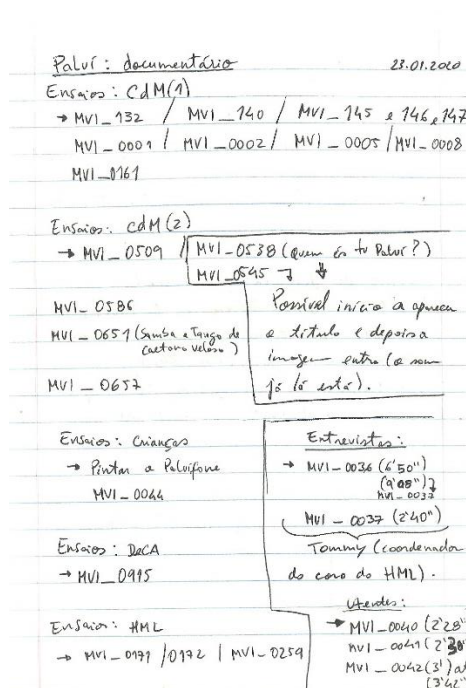 Paluí: documentário 23.01.2020
Ensaios: CdM(1)
→ MVI_132 / MVI_140 / MVI_145 e 146 e 147
MVI_0001 / MVI_0002 / MVI_0005 / MVI_0008
MVI_0161
Ensaios: CdM(2)
→ MVI_0509
MVI_0586
MVI_0651 (Samba e Tango de
Caetano Veloso)
MVI_0657
MVI_0538 (Quem és tu Paluí?)
MVI_0545
Possível início a aparecer
o título e depois a
imagem entra (o som
já lá está).
Ensaios: Crianças
→ Pintar o Paluifone
MVI_0044
Ensaios: DeCA
→ MVI_0915
Ensaios: HML
→ MVI_0171 / 0172 / MVI_0259
Entrevistas:
→ MVI_0036 (6'50")
(9'08")
MVI_0037
MVI_0037 (2'40")
Tommy (coordenador
do coro do HML).
Utentes:
→ MVI_0040 (2'28"
MVI_0041 (2'30"
MVI_0042 (3')
(3'42"